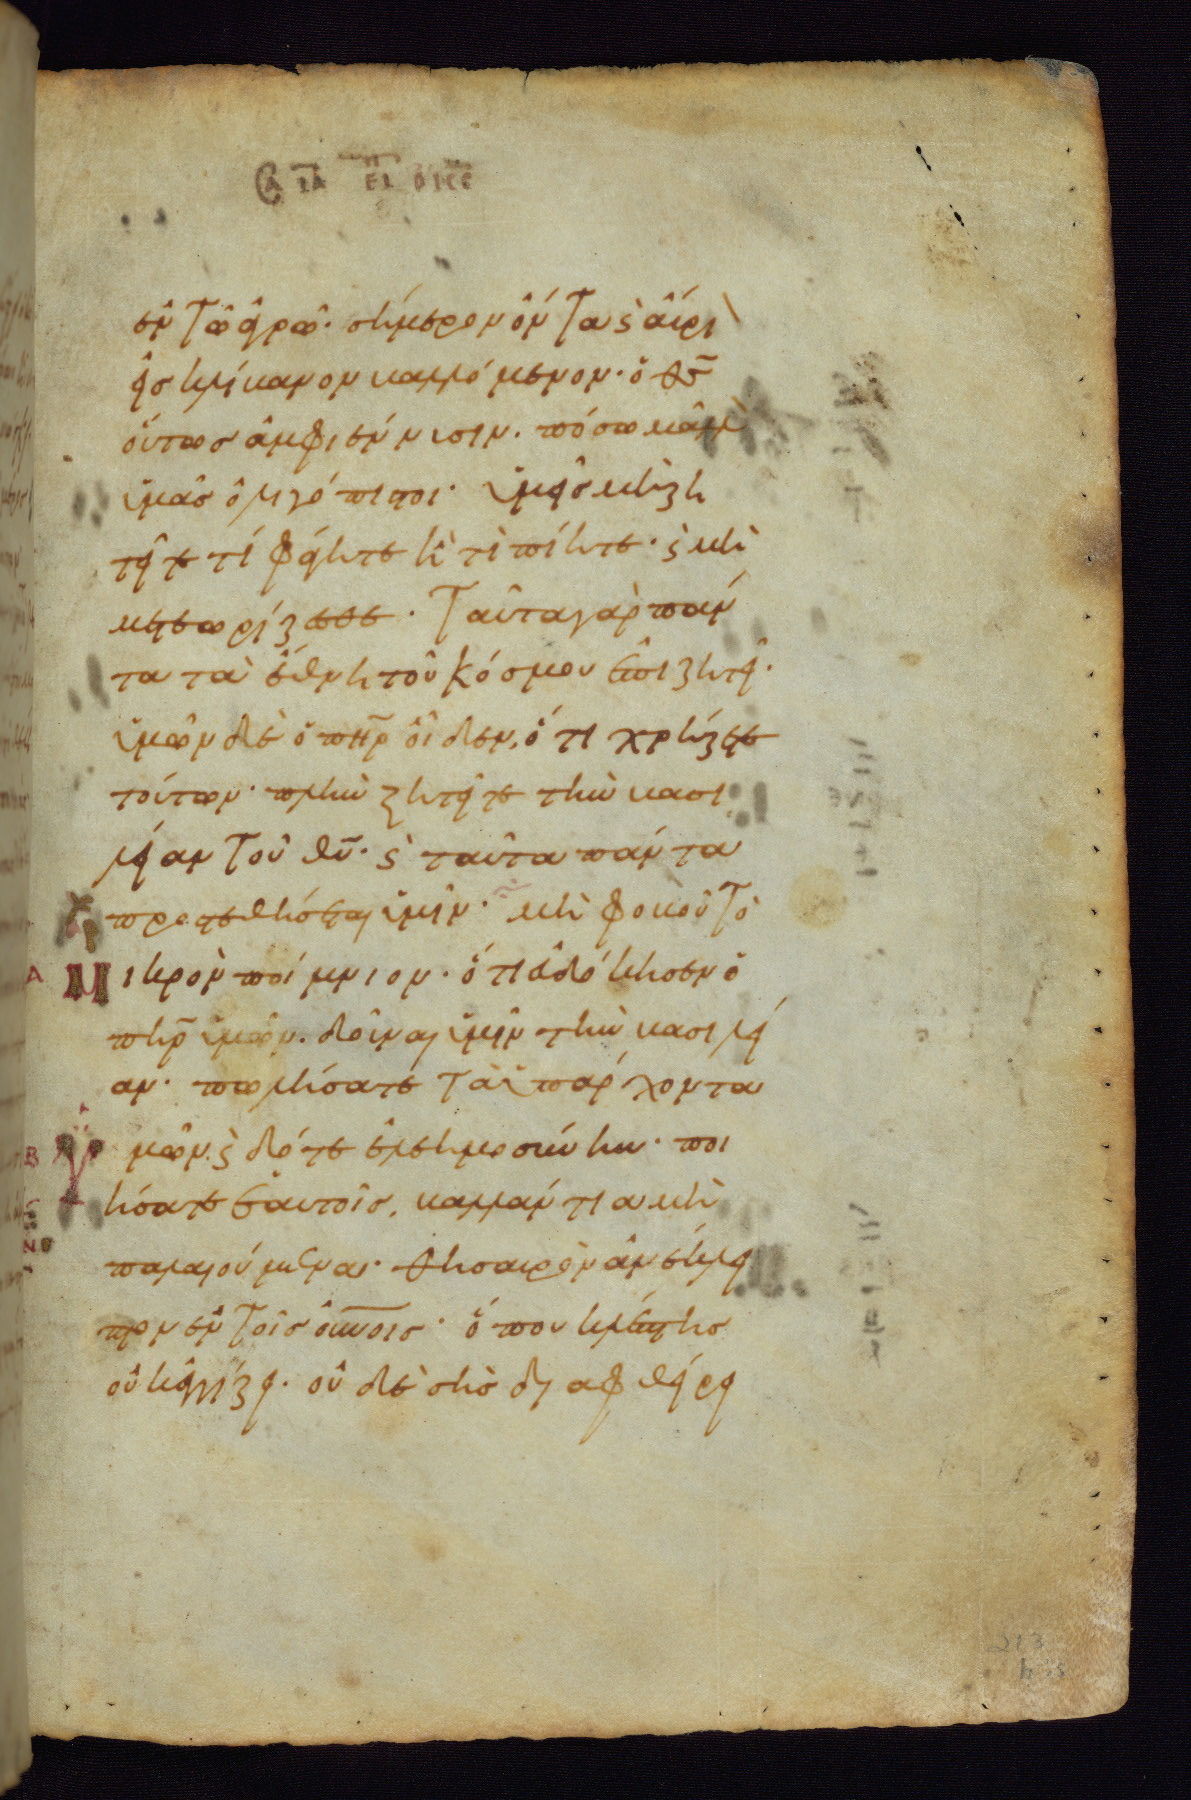 ἐν τῶ ἀγρῶ· σήμερον ὄντα ϛ αὔρι
εἰς κλίβανον βαλλόμενον· ὁ θ̅ς̅
οὕτως ἀμφιέννυσιν· πόσω μᾶλλ
ὑμᾶς ὀλιγόπιστοι· ὑμεῖς μὴ ζη
τεῖτε τί φάγητε ἢ τί πίητε· ϛ μὴ
μετεωρίζεσθε· ταῦτα γὰρ πάν
τα τὰ ἔθνη τοῦ κόσμου ἐπιζητεῖ·
ὑμῶν δὲ ὁ π̅η̅ρ̅ οἶδεν, ὅτι χρήζετε
τούτων· πλὴν ζητεῖτε τὴν βασι
λείαν τοῦ θ̅υ̅· ϛ ταῦτα πάντα
προστεθήσεται ὑμῖν· μὴ φοβοῦ τὸ
μικρὸν ποίμνιον· ὅτι εὐδόκησεν ὁ
π̅η̅ρ̅ ὑμῶν· δοῦναι ὑμῖν τὴν βασιλεί
αν· πωλήσατε τὰ ὑπάρχοντα
ὑμῶν ϛ δότε ἐλεημοσύνην· ποι
ήσατε ἑαυτοῖς, βαλλάντια μὴ
παλαιούμενα· θησαυρὸν ἀνέκλει
πτον ἐν τοῖς ο̅υ̅ν̅οις· ὅπου κλέπτης
οὐκ ἐγγίζει· οὐδὲ σὴς διαφθείρει